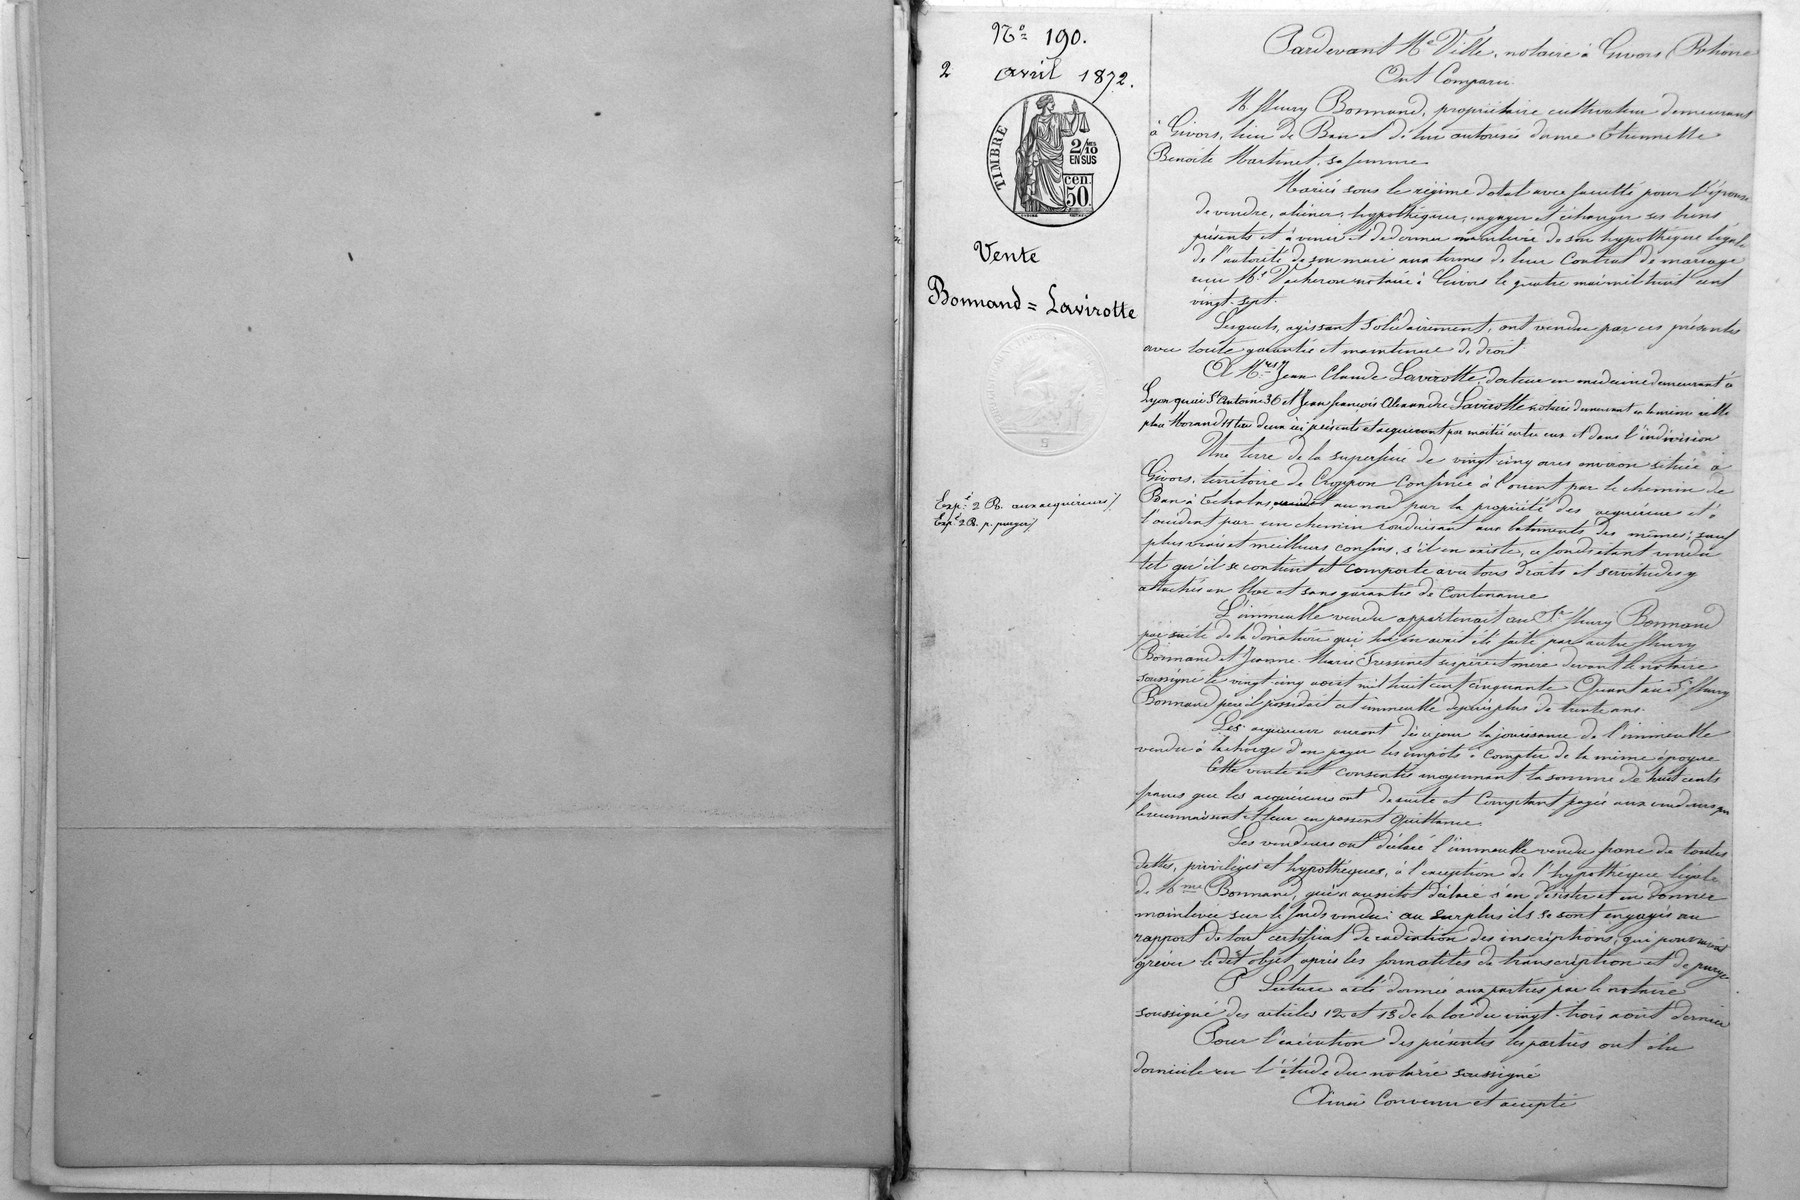 No 190.
2 avril 1872.
TIMBRE
2/10 EN SUS
cen. 50
Vente
Bonnand = Lavirotte
Exp.é 2 R. aux acquéreurs
Exp.é 2 R. p. purger
Pardevant Me Ville, notaire à Givors (Rhône
Ont Comparu
M. fleury Bonnand, propriétaire cultivateur demeurant
à Givors, lieu de Ban et de lui autorisée dame Etiennette
Benoite Martinet, sa femme
Mariés sous le régime dotal avec faculté pour l'épouse
de vendre, aliéner, hypothéquer, engager et échanger ses biens
présents et à venir et de donner mainlevée de son hypothèque légale
de l'autorité de son mari aux termes de leur Contrat de mariage
reçu Me Vacheron notaire à Givors le quatre mai mil huit cent
vingt-sept.
Lesquels, agissant solidairement, ont vendu par ces présentes
avec toute garantie et maintenue de droit
A Mrs Jean Claude Lavirotte, docteur en médecine demeurant à
Lyon quai St Antoine 36 et Jean françois Alexandre Lavirotte notaire demeurant en la même ville
place Morand tous deux ici présents et acquérant par moitié entre eux et dans l'indivision
Une terre de la superficie de vingt-cinq ares environ située à
Givors, territoire de Croppon Confinée à l'orient par le chemin de
Ban à Echalas, au nord par la propriété des acquéreurs et à
l'occident par un chemin conduisant aux batiments des mêmes; sauf
plus vrais et meilleurs confins, s'il en existe, ce fonds étant vendu
tel qu'il se contient et comporte avec tous droits et servitudes y
attachés en bloc et sans garantie de Contenance
L'immeuble vendu appartenait au Sr fleury Bonnand
par suite de la donation qui lui en avait été faite par autre fleury
Bonnand et Jeanne Marie Fressinet ses père et mère devant le notaire
soussigné le vingt-cinq août mil huit cent cinquante Quant au Sr fleury
Bonnand père il possédait cet immeuble depuis plus de trente ans.
Les acquéreurs auront dès ce jour la jouissance de l'immeuble
vendu à la charge d'en payer les impôts à Compter de la même époque
Cette vente est consentie moyennant la somme de huit cents
francs que les acquéreurs ont de suite et Comptant payée aux vendeurs qui
le reconnaissent et leur en passent Quittance.
Les vendeurs ont déclaré l'immeuble vendu franc de toutes
dettes, privilèges et hypothèques, à l'exception de l'hypothèque légale
de Mme Bonnand, qui a aussitôt déclaré s'en désister et en donner
mainlevée sur le fonds vendu; au surplus ils se sont engagés au
rapport de tout certificat de radiation des inscriptions, qui pourraient
grever le dit objet, après les formalités de transcription et de purge
Lecture a été donnée aux parties par le notaire
soussigné des articles 12 et 13 de la loi du vingt-trois août dernier
Pour l'exécution des présentes les parties ont élu
domicile en l'étude du notaire soussigné
Ainsi Convenu et accepté